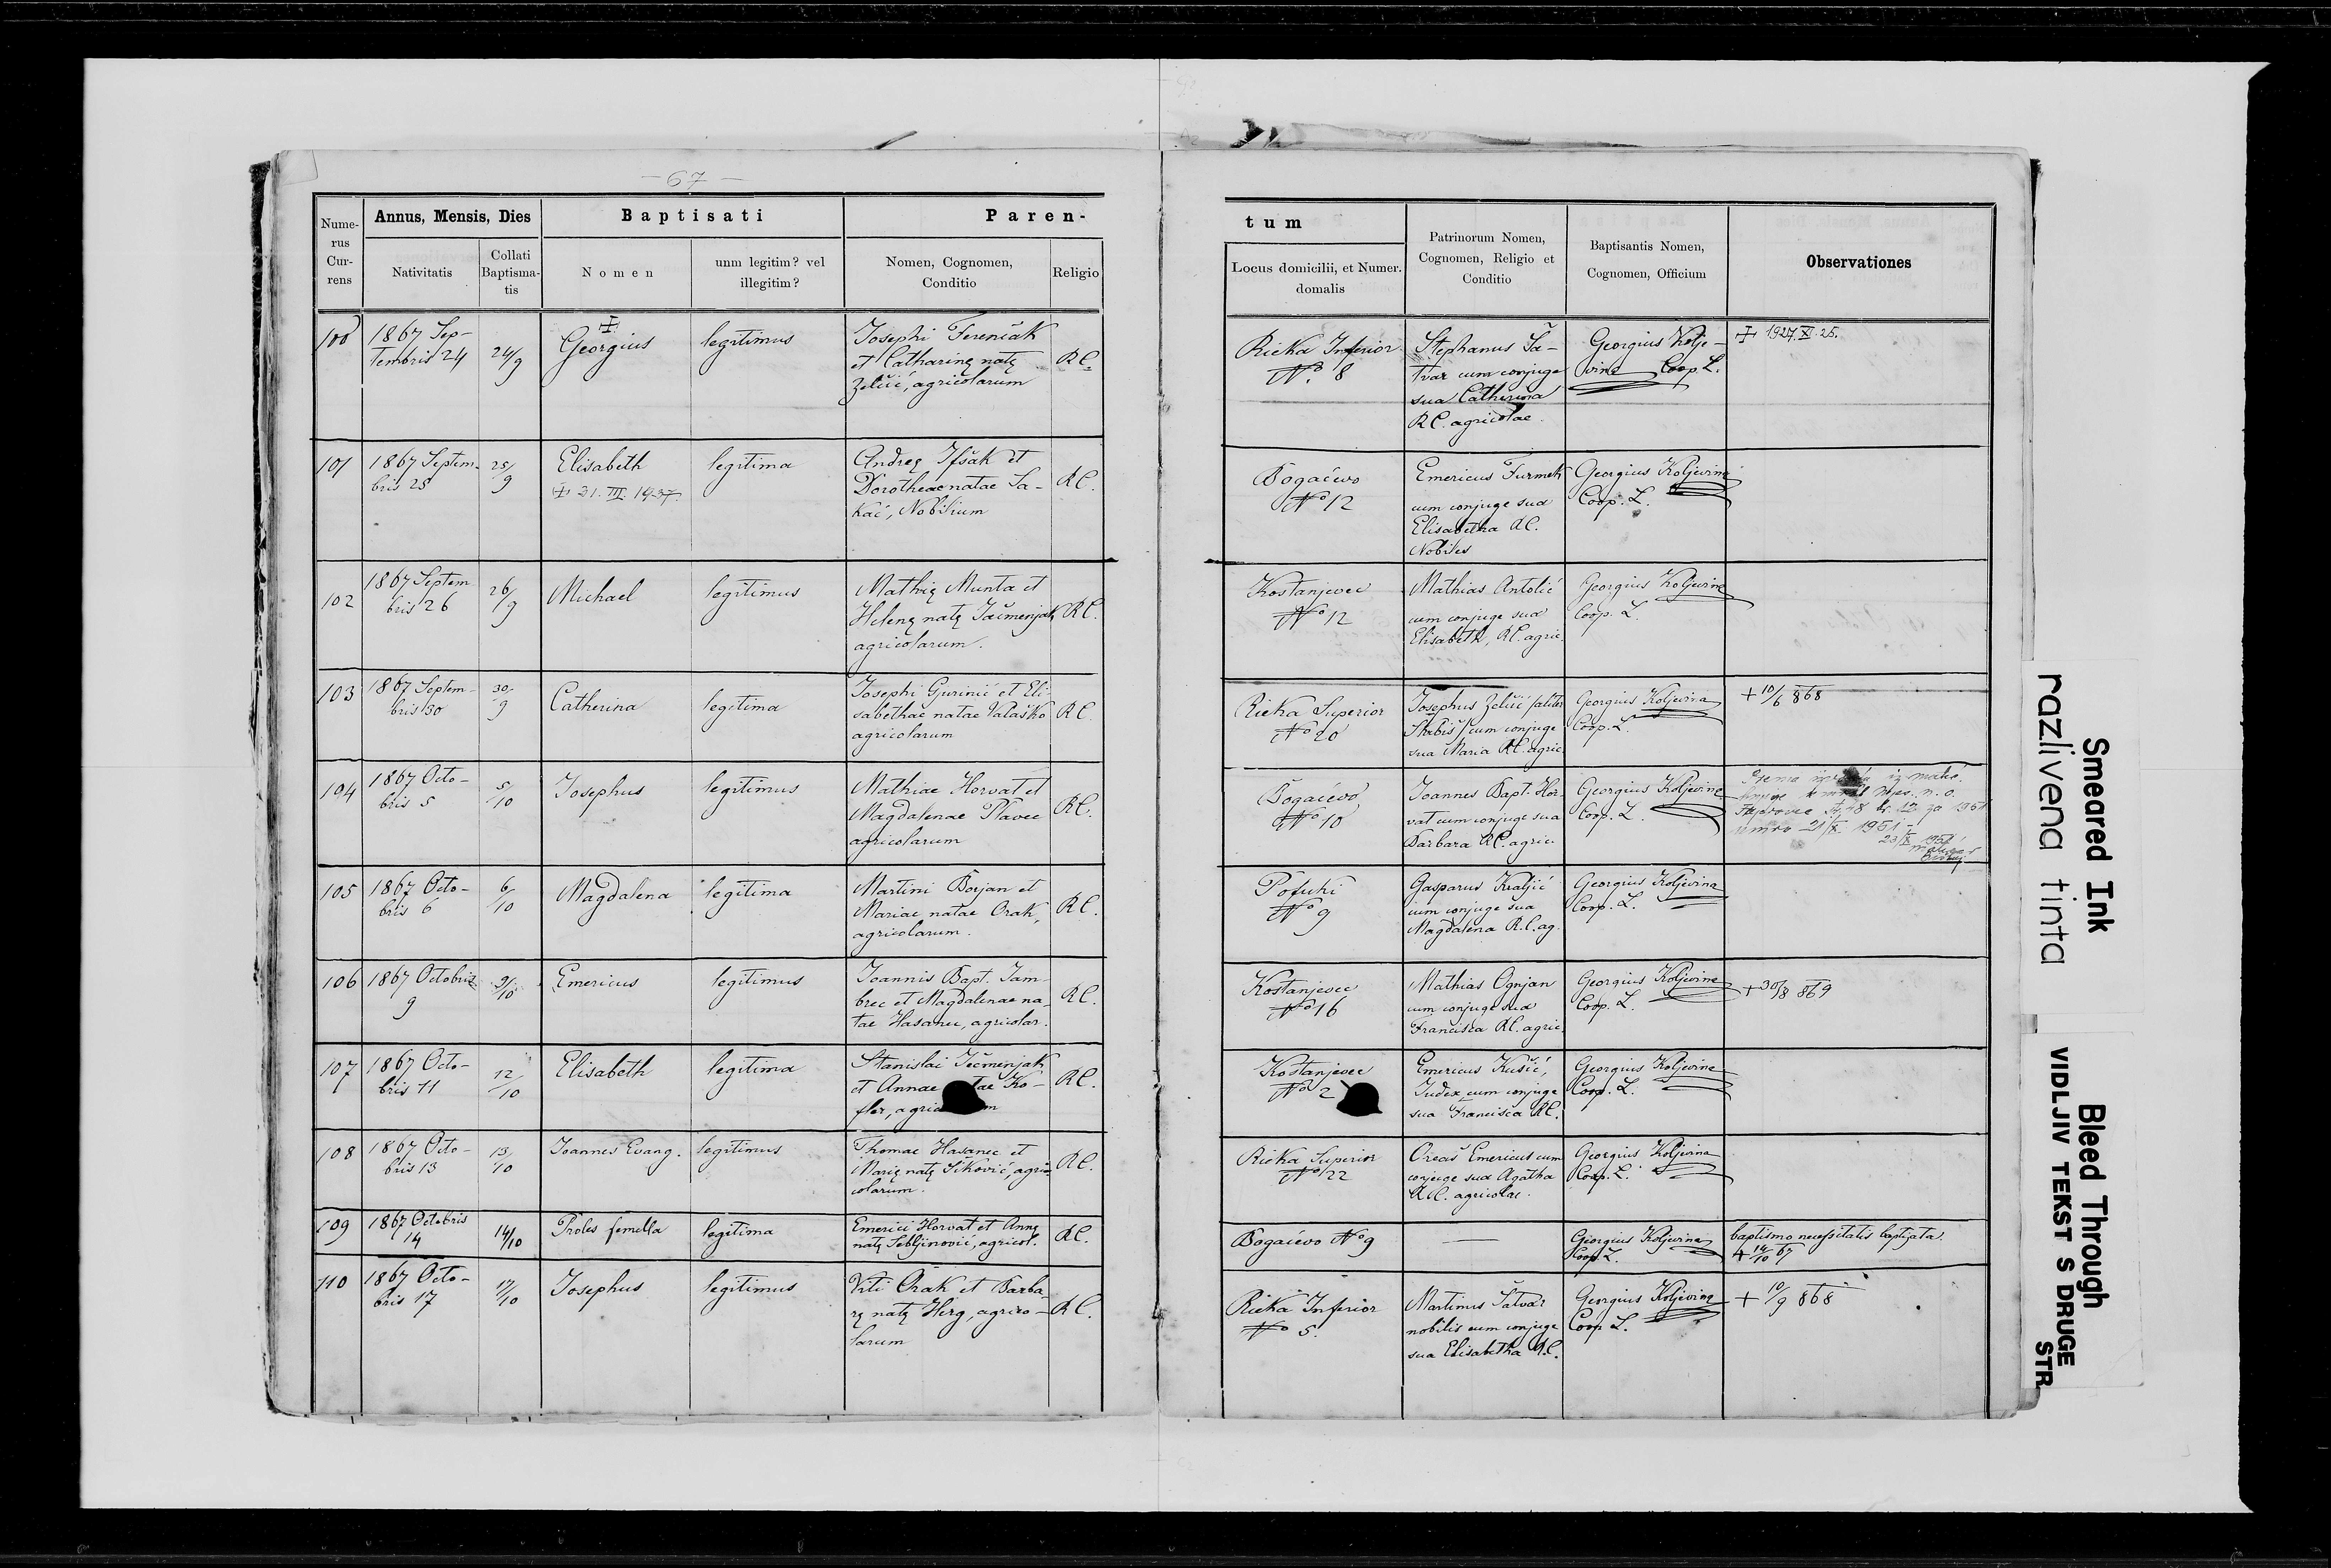 - 67 -
Nume-
rus
Cur-
rens
Annus, Mensis, Dies
Nativitatis
Collati
Baptisma-
tis
Baptisati
Nomen
unm legitim? vel
illegitim?
Paren-
Nomen, Cognomen,
Conditio
Religio
tum
Locus domicilii, et Numer.
domalis
Patrinorum Nomen,
Cognomen, Religio et
Conditio
Baptisantis Nomen,
Cognomen, Officium
Observationes
100
1867 Sep-
tembris 24
24/9
Georgius
legitimus
Josephi Ferenčak
et Catharinę natę
Zelčić, agricolarum
RC.
Rieka Inferior
No. 8
Stephanus Ša-
tvar cum conjuge
sua Catherina
RC. agricolae.
Georgius Kolje-
vina Coop. L.
+ 1927. XI. 25.
101
1867 Septem-
bris 25
25/9
Elisabeth
+ 31. III. 1937.
legitima
Andreę Ifšak et
Dorotheae natae Sa-
kač, Nobilium
RC.
Bogačevo
No 12
Emericus Furmek
cum conjuge sua
Elisabetha RC.
Nobiles
Georgius Koljevina
Coop. L.
102
1867 Septem
bris 26
26/9
Michael
legitimus
Mathię Munta et
Helenę natę Ječmenjak
agricolarum.
RC.
Kostanjevec
No 12
Mathias Antolić
cum conjuge sua
Elisabeth, RC. agric.
Georgius Koljevina
Coop. L.
103
1867 Septem-
bris 30
30/9
Catherina
legitima
Josephi Gurinić et Eli-
sabethae natae Valaško
agricolarum
RC.
Rieka Superior
No 20
Josephus Zelčić (aliter
Skubiš) cum conjuge
sua Maria RC. agric.
Georgius Koljevina
Coop. L.
+ 10/6 868
104
1867 Octo-
bris 5
5/10
Josephus
legitimus
Mathiae Horvat et
Magdalenae Plavec
agricolarum
RC.
Bogačevo
No 10
Joannes Bapt. Hor-
vat cum conjuge sua
Barbara RC. agric.
Georgius Koljevina
Coop. L.
iz matic.
knjige umrlih Mjes. n. o.
za 1951
umro 21/X. 1951 -
23/X 1951
105
1867 Octo-
bris 6
6/10
Magdalena
legitima
Martini Borjan et
Mariae natae Orak,
agricolarum.
RC.
Pofuki
No 9
Gasparus Kraljić
cum conjuge sua
Magdalena R.C. ag.
Georgius Koljevina
Coop. L.
106
1867 Octobris
9
9/10
Emericus
legitimus
Joannis Bapt. Jam-
brec et Magdalenae na
tae Hasanec, agricolar.
RC.
Kostanjevec
No 16
Mathias Ognjan
cum conjuge sua
Francisca RC. agric.
Georgius Koljevina
Coop. L.
+ 30/8 869
107
1867 Octo-
bris 11
12/10
Elisabeth
legitima
Stanislai Ječmenjak
et Annae tae Ko-
fler, agric m
RC.
Kostanjevec
No 2
Emericus Kušić,
Judex cum conjuge
sua Francisca RC.
Georgius Koljevina
Coop. L.
108
1867 Octo-
bris 13
13/10
Joannes Evang.
legitimus
Thomae Hasanec et
Marię natę Šiković, agri-
colarum.
RC.
Rieka Superior
No 22
Oreač Emericus cum
conjuge sua Agatha
RC. agricolae.
Georgius Koljevina
Coop. L.
109
1867 Octobris
14
14/10
Proles femella
legitima
Emerici Horvat et Annę
natę Sebljinović, agricol.
RC.
Bogačevo No 9
—
Georgius Koljevina
Coop. L.
baptismo necessitatis baptizata.
+ 14/10 67
110
1867 Octo-
bris 17
17/10
Josephus
legitimus
Viti Orak et Barba-
rę natę Herg, agrico-
larum
RC.
Rieka Inferior
No 5.
Martinus Šatvar
nobilis cum conjuge
sua Elisabetha RC.
Georgius Koljevina
Coop L.
+ 10/9 868
Smeared Ink
razlivena tinta
Bleed Through
VIDLJIV TEKST S DRUGE
STR